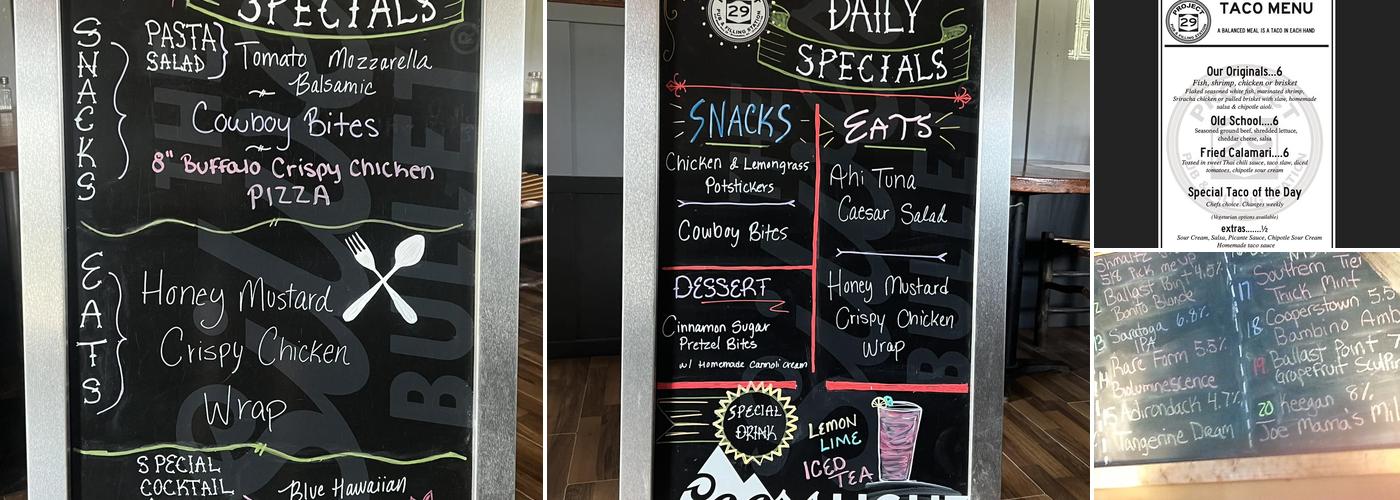 SPECIALS
SNACKS
PASTA
SALAD
Tomato Mozzarella
Balsamic
Cowboy Bites
8" Buffalo Crispy Chicken
PIZZA
EATS
Honey Mustard
Crispy Chicken
Wrap
SPECIAL
COCKTAIL
Blue Hawaiian
BULLEI
®
29
PUB & FILLING STATION
DAILY
SPECIALS
SNACKS
Chicken & Lemongrass
Potstickers
Cowboy Bites
DESSERT
Cinnamon Sugar
Pretzel Bites
w/ Homemade Cannoli cream
EATS
Ahi Tuna
Caesar Salad
Honey Mustard
Crispy Chicken
Wrap
SPECIAL
DRINK
LEMON
LIME
ICED
TEA
PROJECT
29
PUB & FILLING STATION
TACO MENU
A BALANCED MEAL IS A TACO IN EACH HAND
Our Originals...6
Fish, shrimp, chicken or brisket
Flaked seasoned white fish, marinated shrimp,
Sriracha chicken or pulled brisket with slaw, homemade
salsa & chipotle aioli.
Old School....6
Seasoned ground beef, shredded lettuce,
cheddar cheese, salsa
Fried Calamari....6
Tossed in sweet Thai chili sauce, taco slaw, diced
tomatoes, chipotle sour cream
Special Taco of the Day
Chefs choice. Changes weekly
(Vegetarian options available)
extras.......½
Sour Cream, Salsa, Picante Sauce, Chipotle Sour Cream
Homemade taco sauce
Shmaltz
518 Pick me up
Ballast Point 4.5%
Bonito Blonde
Saratoga 6.8%
IPA
Rare Form 5.5%
Bioluminescence
15 Adirondack 4.7%
Tangerine Dream
17 Southern Tier
Thick Mint
18 Cooperstown 5.5
Bambino Amb
19 Ballast Point 7
Grapefruit Sculpin
20 Keegan 8%
Joe Mama's Mi